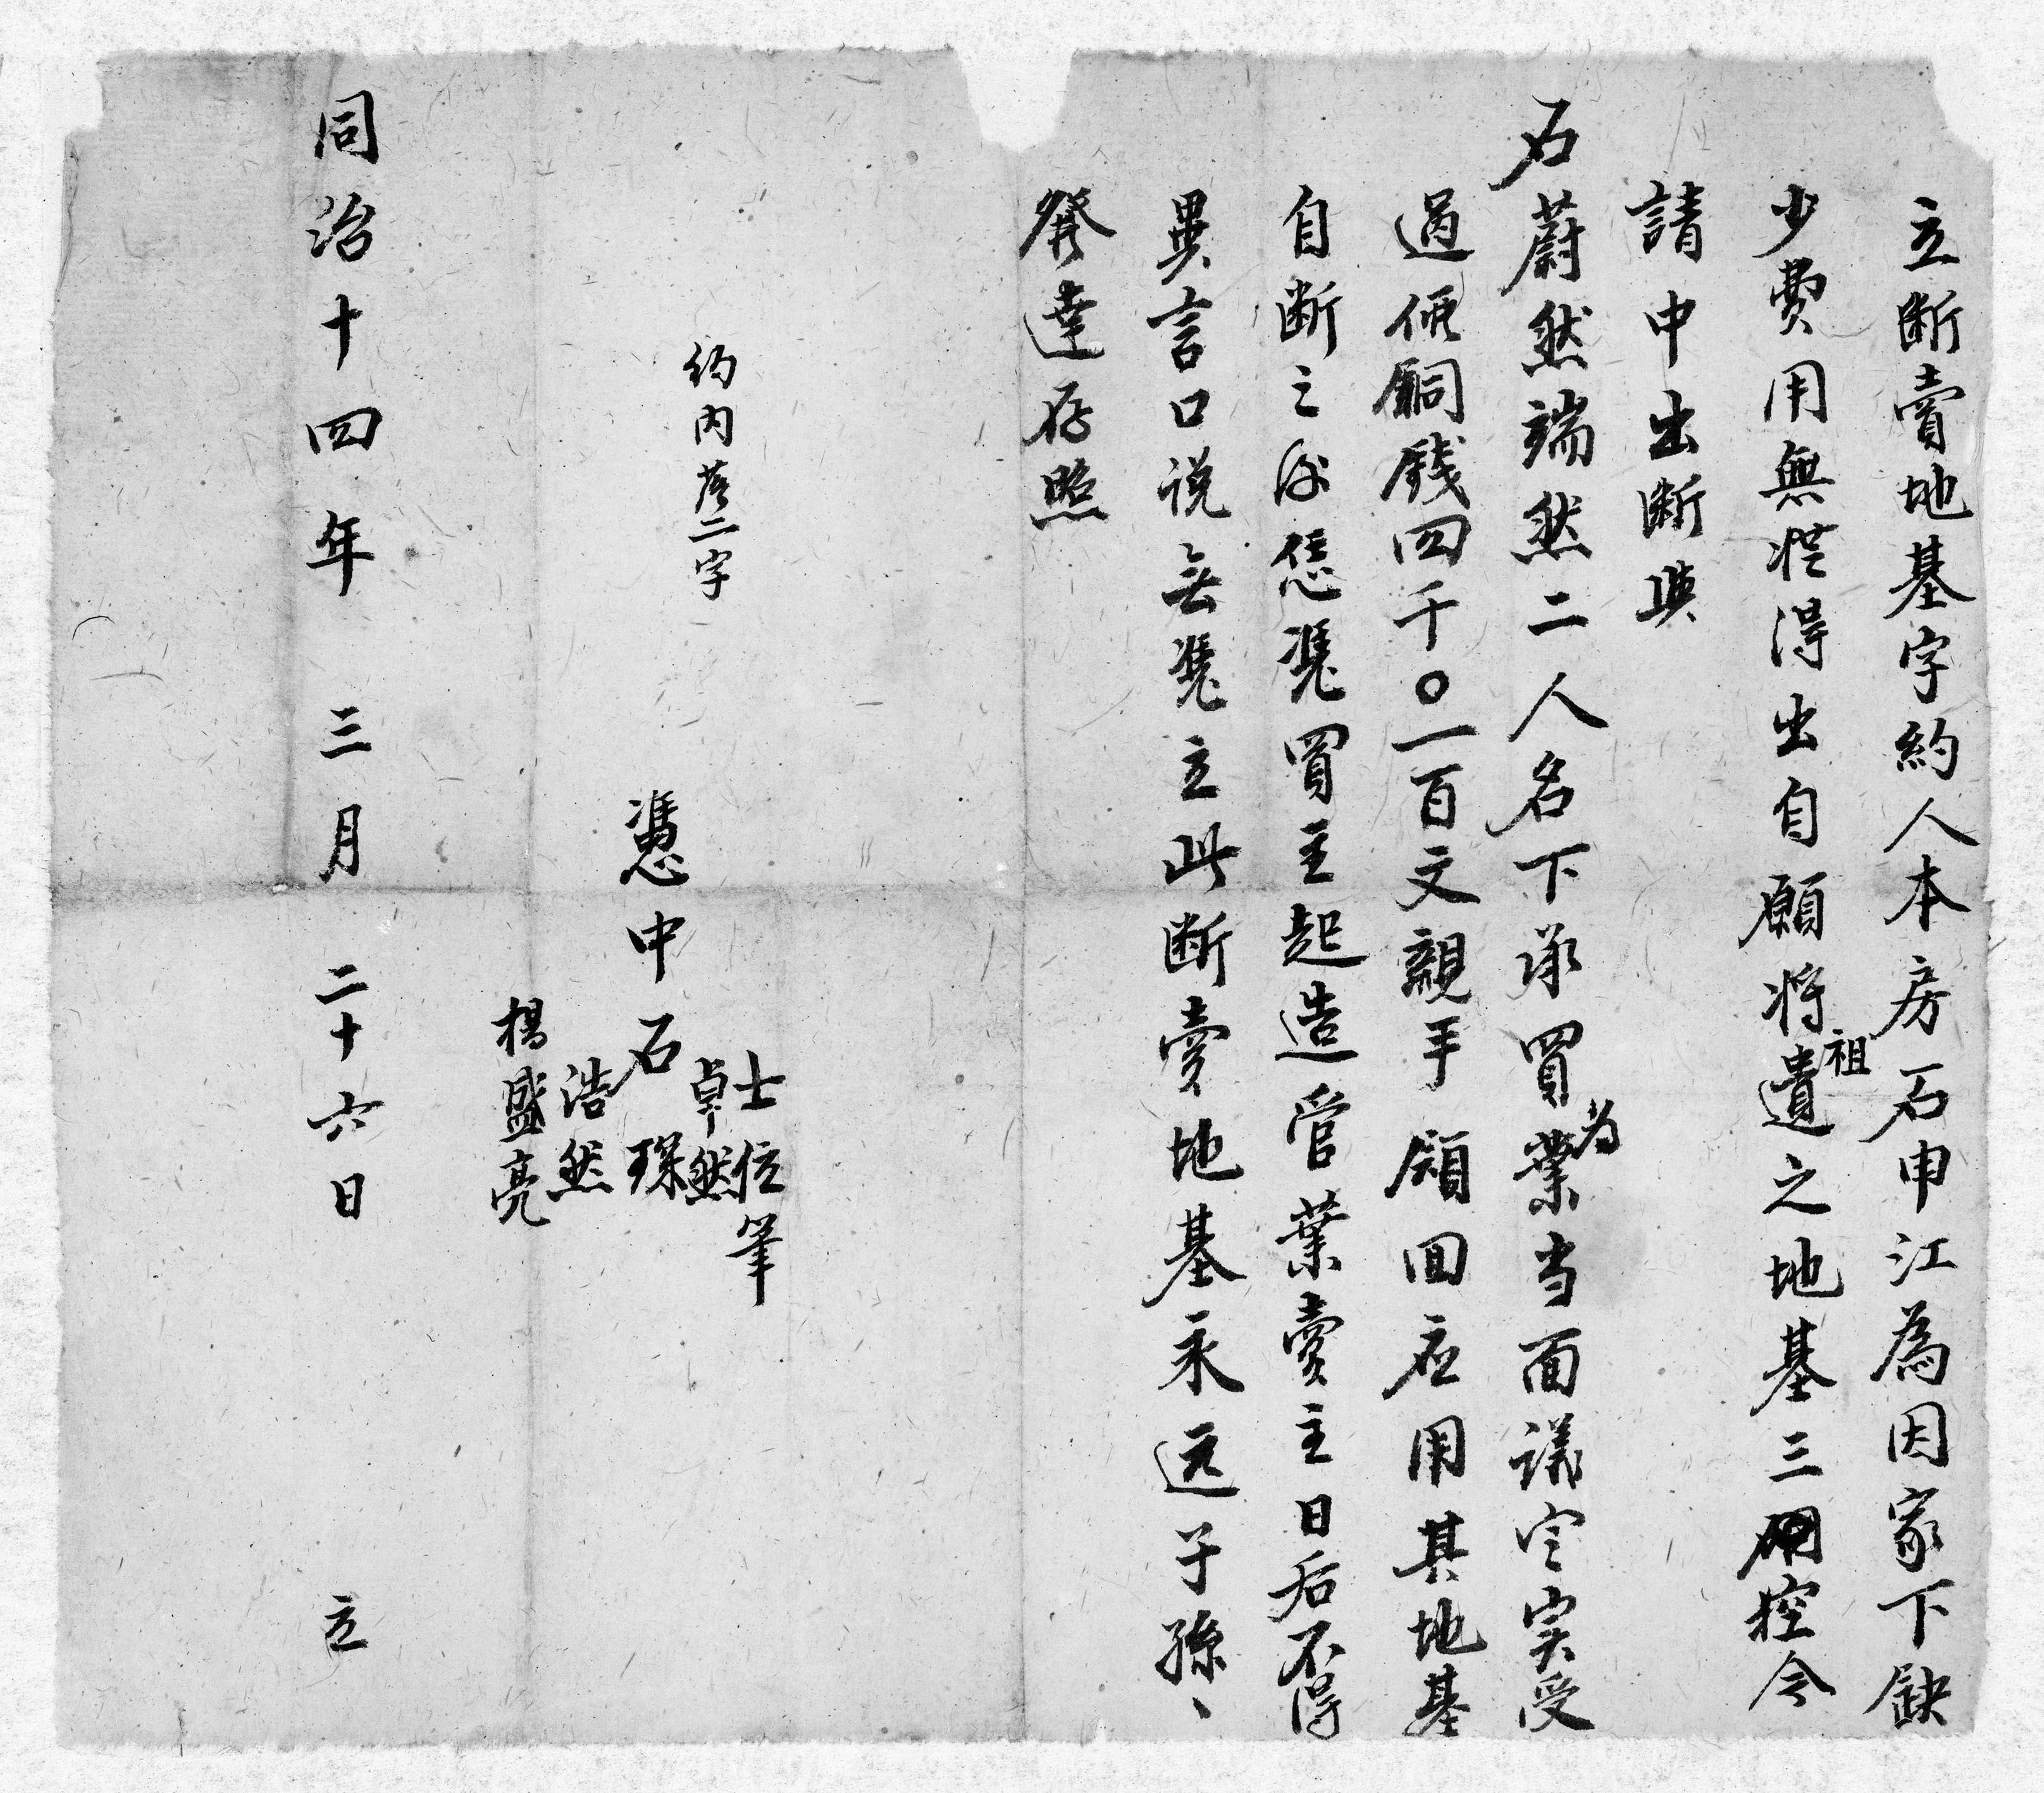 立断賣地基字約人本房石申江為因家下缺
少費用無從得出自願將祖遺之地基三間控令
請中出断與
石蔚然端然二人名下承買為業当面議定実受
過價銅錢四千〇一百文親手領回应用其地基
自断之後恁憑買主起造管葉賣主日后不得
異言口说無憑立此断賣地基永远子孫〻
發達存照
約内落二字
士位筆
卓然
憑中石 琛
浩然
楊盛亮
同治十四年 三月 二十六日 立